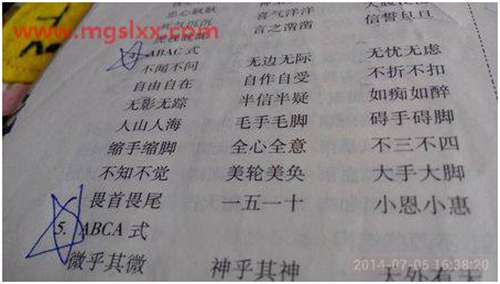 www.mgslxx.com
忠心耿耿 喜气洋洋
死气沉沉 言之凿凿 信誓旦旦
ABAC 式
不闻不问 无边无际 无忧无虑
自由自在 自作自受 不折不扣
无影无踪 半信半疑 如痴如醉
人山人海 毛手毛脚 碍手碍脚
缩手缩脚 全心全意 不三不四
不知不觉 美轮美奂 大手大脚
畏首畏尾 一五一十 小恩小惠
5. ABCA 式
微乎其微 神乎其神 天外有天
2014-07-05 16:38:20